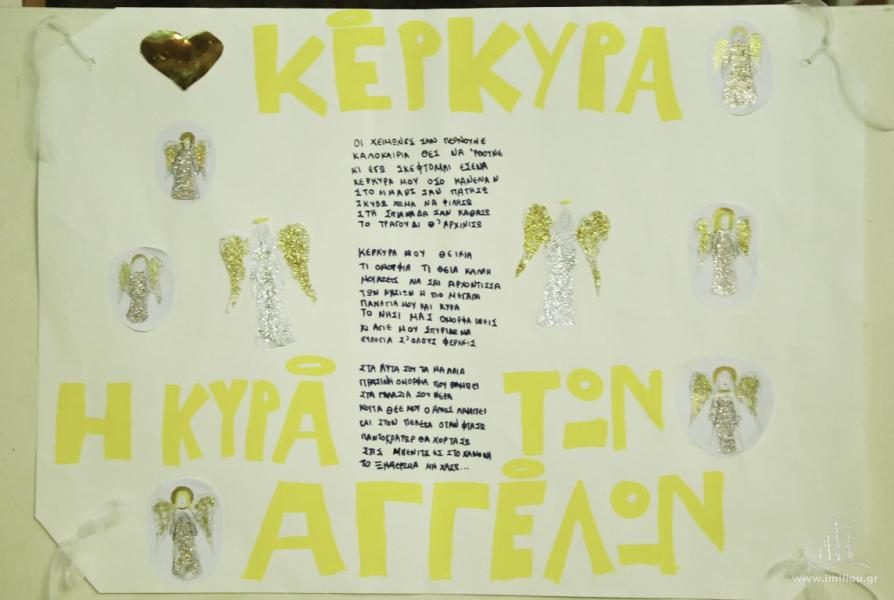 ΚΕΡΚΥΡΑ
ΟΙ ΧΕΙΜΩΝΕΣ ΣΑΝ ΠΕΡΝΟΥΝΕ
ΚΑΛΟΚΑΙΡΙΑ ΘΕΣ ΝΑ 'ΡΘΟΥΝΕ
ΚΙ ΕΓΩ ΣΚΕΦΤΟΜΑΙ ΕΣΕΝΑ
ΚΕΡΚΥΡΑ ΜΟΥ ΟΣΟ ΚΑΝΕΝΑΝ
ΣΤΟ ΣΑΝ ΠΑΤΗΣΩ
ΣΚΥΒΩ ΧΩΜΑ ΝΑ ΦΙΛΗΣΩ
ΣΤΗ ΣΠΙΑΝΑΔΑ ΣΑΝ ΚΑΘΙΣΩ
ΤΟ ΤΡΑΓΟΥΔΙ Θ' ΑΡΧΙΝΙΣΩ
ΚΕΡΚΥΡΑ ΜΟΥ ΘΕΙΚΙΑ
ΤΙ ΟΜΟΡΦΙΑ ΤΙ ΘΕΙΑ ΚΑΛΛΗ
ΜΟΙΑΖΕΙΣ ΝΑ ΣΑΙ ΑΡΧΟΝΤΙΣΣΑ
ΤΩΝ ΝΗΣΙΩΝ Η ΠΙΟ ΜΕΓΑΛΗ
ΠΑΝΑΓΙΑ ΜΟΥ ΚΑΙ ΚΥΡΑ
ΤΟ ΝΗΣΙ ΜΑΣ ΟΜΟΡΦΑΙΝΕΙΣ
ΚΙ ΑΓΙΕ ΜΟΥ ΣΠΥΡΙΔΩΝΑ
ΕΥΛΟΓΙΑ Σ' ΟΛΟΥΣ ΦΕΡΝΕΙΣ
ΣΤΑ ΣΟΥ ΤΑ ΠΑΛΙΑ
ΠΡΑΣΙΝΗ ΟΜΟΡΦΙΑ ΠΟΥ ΘΑΜΠΕΙ
ΣΤΑ ΓΑΛΑΖΙΑ ΣΟΥ ΝΕΡΑ
ΚΟΙΤΑ ΘΕΕ ΜΟΥ Ο ΗΛΙΟΣ ΛΑΜΠΕΙ
ΚΑΙ ΣΤΟΝ ΠΕΛΕΚΑ ΟΤΑΝ ΦΤΑΣΩ
ΠΑΝΤΟΚΡΑΤΩΡ ΘΑ ΧΟΡΤΑΣΩ
ΣΤΙΣ ΜΠΕΝΙΤΣΕΣ ΣΤΟ ΚΑΝΟΝΙ
ΤΟ ΞΗΜΕΡΩΜΑ ΝΑ ΧΑΣΩ...
Η ΚΥΡΑ ΤΩΝ
ΑΓΓΕΛΩΝ
www.imillou.gr